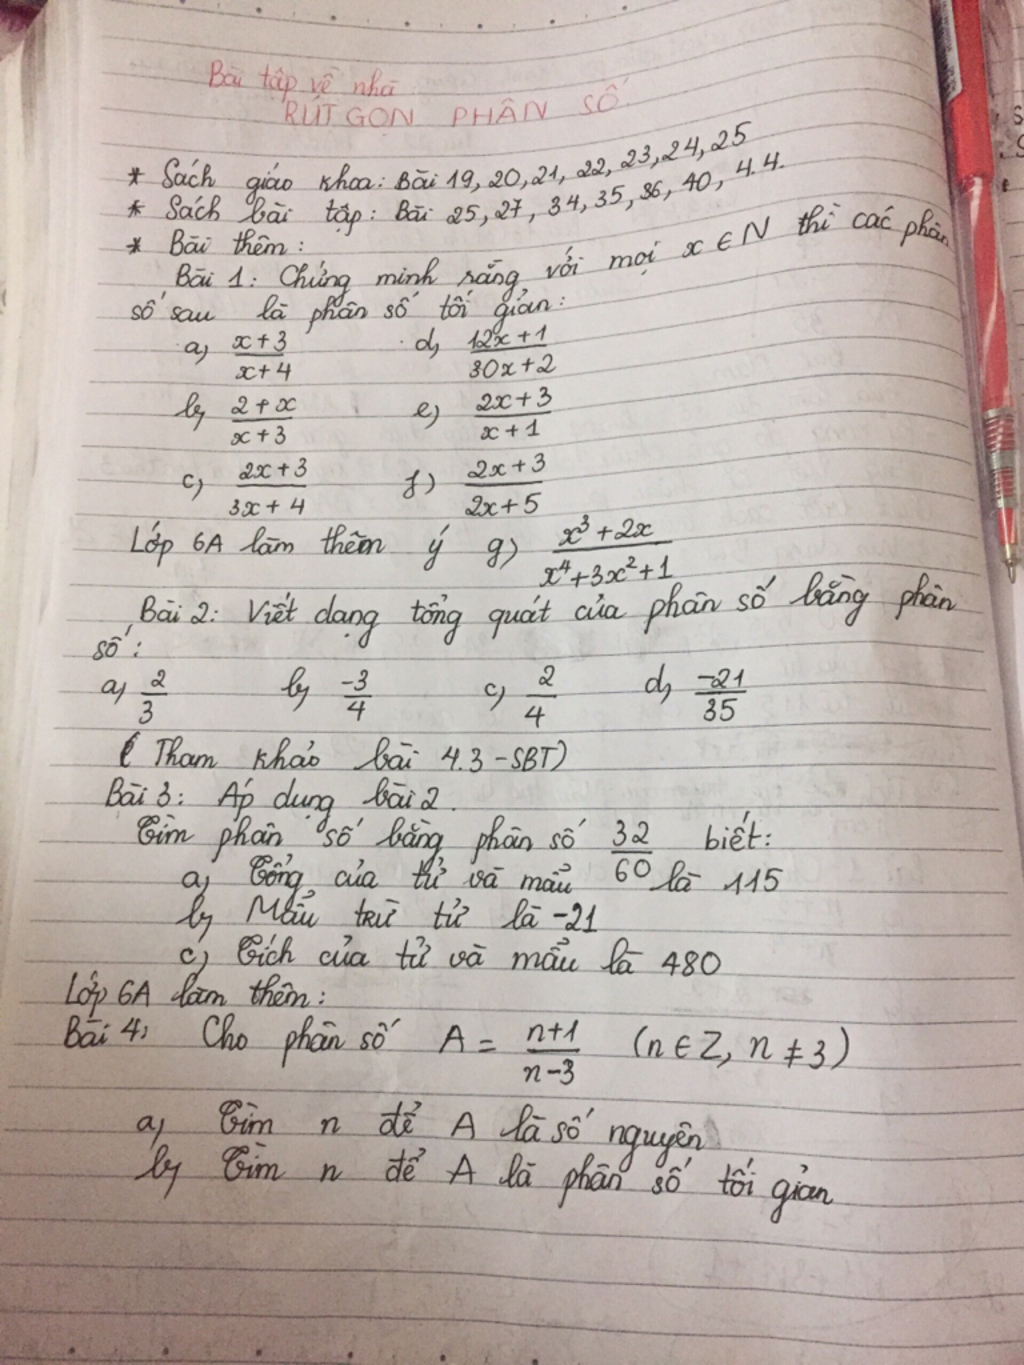 Bài tập về nhà
RÚT GỌN PHÂN SỐ
* Sách giáo khoa: Bài 19, 20, 21, 22, 23, 24, 25
* Sách bài tập: Bài 25, 27, 34, 35, 36, 40, 4.4.
* Bài thêm:
Bài 1: Chứng minh rằng với mọi x ∈ N thì các phân
số sau là phân số tối giản:
a, (x+3)/(x+4) d, (12x+1)/(30x+2)
b, (2+x)/(x+3) e) (2x+3)/(x+1)
c, (2x+3)/(3x+4) f) (2x+3)/(2x+5)
Lớp 6A làm thêm ý g) (x³+2x)/(x⁴+3x²+1)
Bài 2: Viết dạng tổng quát của phân số bằng phân
số:
a, 2/3 b, -3/4 c, 2/4 d, -21/35
( Tham khảo bài 4.3 - SBT)
Bài 3: Áp dụng bài 2.
Tìm phân số bằng phân số 32/60 biết:
a, Tổng của tử và mẫu là 115
b, Mẫu trừ tử là -21
c, Tích của tử và mẫu là 480
Lớp 6A làm thêm:
Bài 4, Cho phân số A = (n+1)/(n-3) (n ∈ Z, n ≠ 3)
a, Tìm n để A là số nguyên
b, Tìm n để A là phân số tối giản